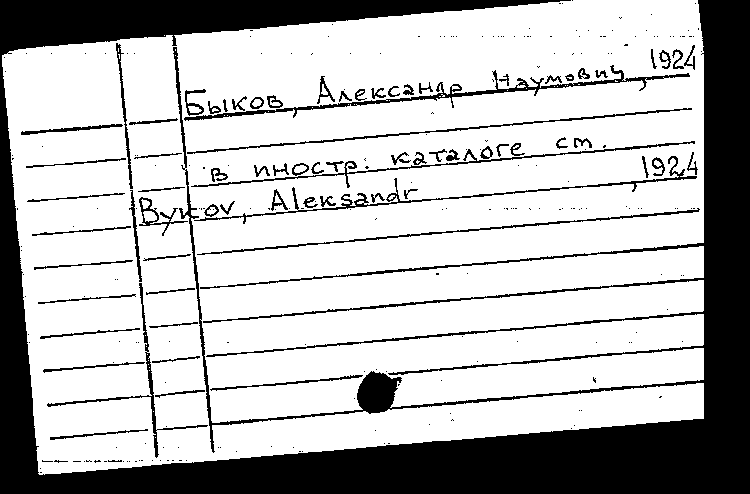 Быков, Александр Наумович, 1924
в иностр. каталоге см.
Bykov, Aleksandr , 1924